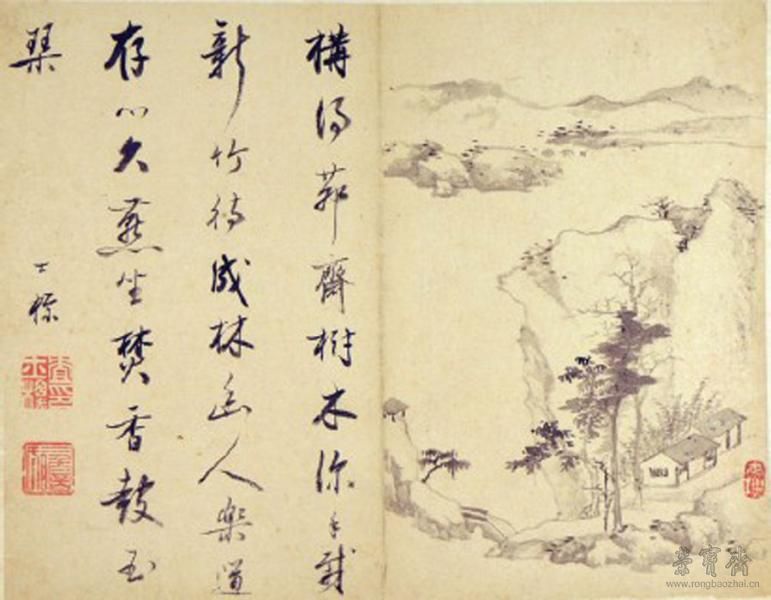 構得茆齋樹木深手栽
新竹待成林幽人樂道
存心久燕坐焚香鼓玉
琹
士標
榮寶齋
www.rongbaozhai.cn